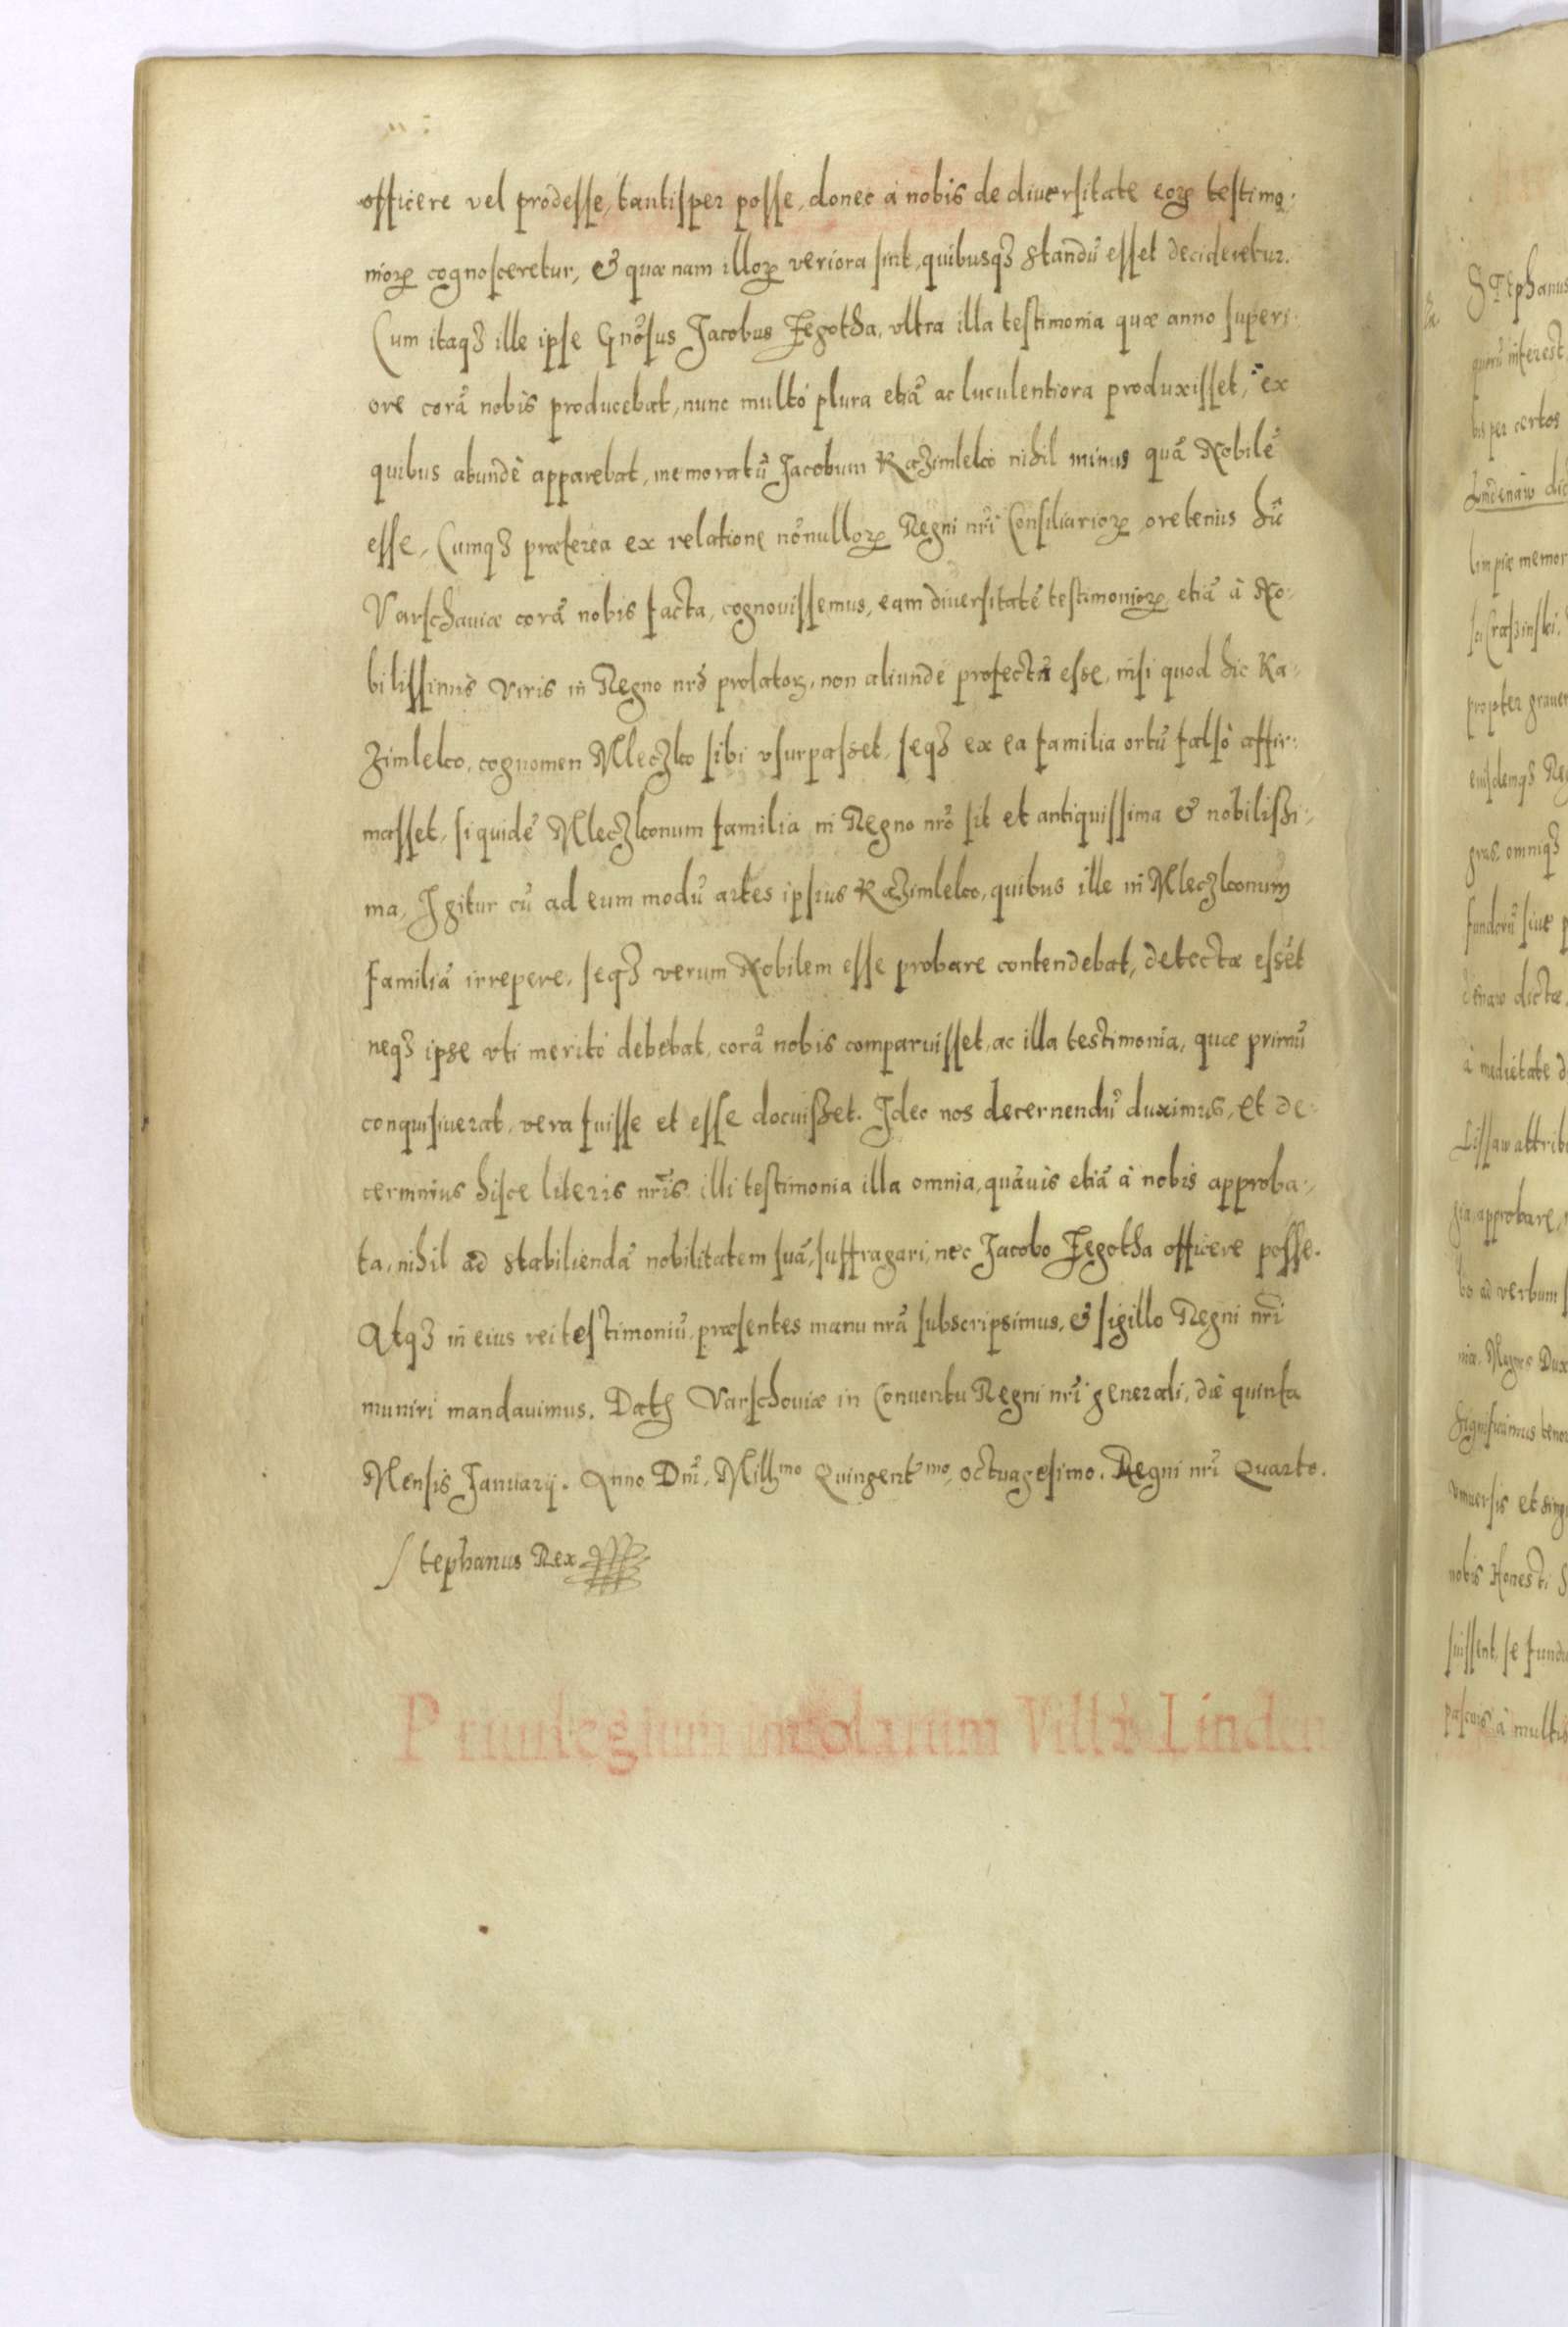 officere vel prodesse, tantisper posse, donec à nobis de diversitate eorꝫ testimo:
niorꝫ cognosceretur, & quæ nam illorꝫ veriora sint, quibusqꝫ standũ esset decideretur.
Cum itaqꝫ ille ipse Gnõsus Jacobus Zegotha, vltra illa testimonia quæ anno superi:
ore corã nobis producebat, nunc multò plura etiã ac luculentiora produxisset, ex
quibus abundè apparebat, memoratũ Jacobum Kazimleko nihil minus quã Nobilẽ
esse, Cumqꝫ præterea ex relatione nõnullorꝫ Regni nr̃i Consiliariorꝫ oretenus hĩc
Varschaviæ corã nobis facta, cognovissemus, eam diversitatẽ testimoniorꝫ etiã à No:
bilissimis viris in Regno nrõ prolatorꝫ, non aliunde profectã esse, nisi quod hic Ka:
zimleko, cognomen Mleczko sibi vsurpasset, seqꝫ ex ea familia ortũ falsò affir:
masset, siquidẽ Mleczkonum familia in Regno nrõ sit et antiquissima & nobilißi:
ma, Igitur cũ ad eum modũ artes ipsius Kazimleko, quibus ille in Mleczkonum
familiã irrepere, seqꝫ verum Nobilem esse probare contendebat, detectæ essẽt
neqꝫ ipse vti meritò debebat, corã nobis comparuisset, ac illa testimonia, quæ primũ
conquisiverat, vera fuisse et esse docuißet. Ideo nos decernendũ duximus, Et de:
cernimus hisce literis nr̃is, illi testimonia illa omnia, quãvis etiã à nobis approba:
ta, nihil ad stabiliendã nobilitatem suã, suffragari, nec Jacobo Zegotha officere posse.
Atqꝫ in eius rei testimoniũ, præsentes manu nrã subscripsimus, & sigillo Regni nr̃i
muniri mandavimus. Datꝫ Varschoviæ in Conventu Regni nr̃i generali, diẽ quinta
Mensis Januarij. Anno Dnĩ. Millmo Quingentmo, octuagesimo. Regni nr̃i Quarto.
Stephanus Rex
Privilegium incolarum Villæ Linden
Stephanus
quorũ interest
bis per certos
Lindenaw dic
propter graven
eiusdemqꝫ Reg
gras, omniqꝫ
fundorũ sive p
denaw dictæ
à medietate d
Lissaw attrib
gia approbare,
bo ad verbum
niæ, Magnus Dux
Significamus tenor
Vniversis et sing
nobis Honesti
suissent, se fundo
pascuis à multis